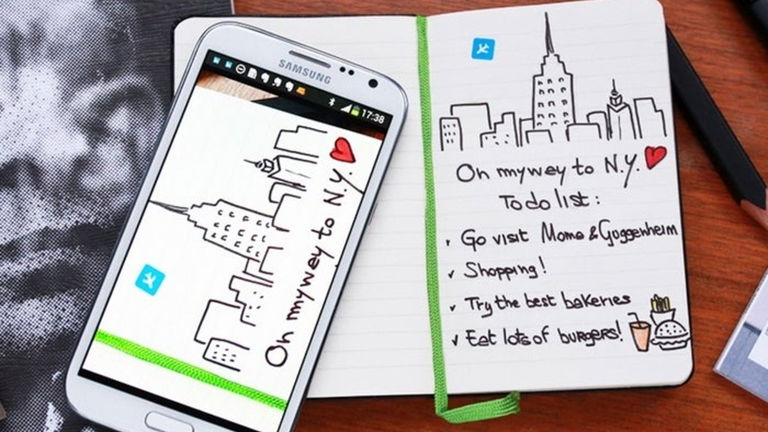 SAMSUNG
17:38
On mywey to N.Y.
On mywey to N.Y.
To do list:
Go visit Moma & Guggenheim
Shopping!
Try the best bakeries
Eat lots of burgers!